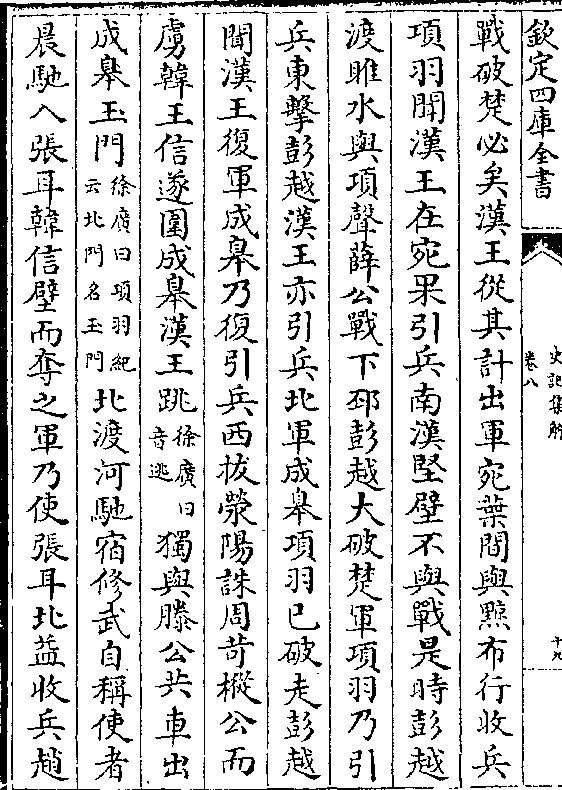 欽定四庫全書
史記集解
卷八
十九
戰破楚必矣漢王從其計出軍宛葉間與黥布行收兵
項羽聞漢王在宛果引兵南漢堅壁不與戰是時彭越
渡睢水與項聲薛公戰下邳彭越大破楚軍項羽乃引
兵東擊彭越漢王亦引兵北軍成臯項羽已破走彭越
聞漢王復軍成臯乃復引兵西拔滎陽誅周苛樅公而
虜韓王信遂圍成臯漢王跳徐廣曰音逃獨與滕公共車出
成臯玉門徐廣曰項羽紀云北門名玉門北渡河馳宿修武自稱使者
晨馳入張耳韓信壁而奪之軍乃使張耳北益收兵趙